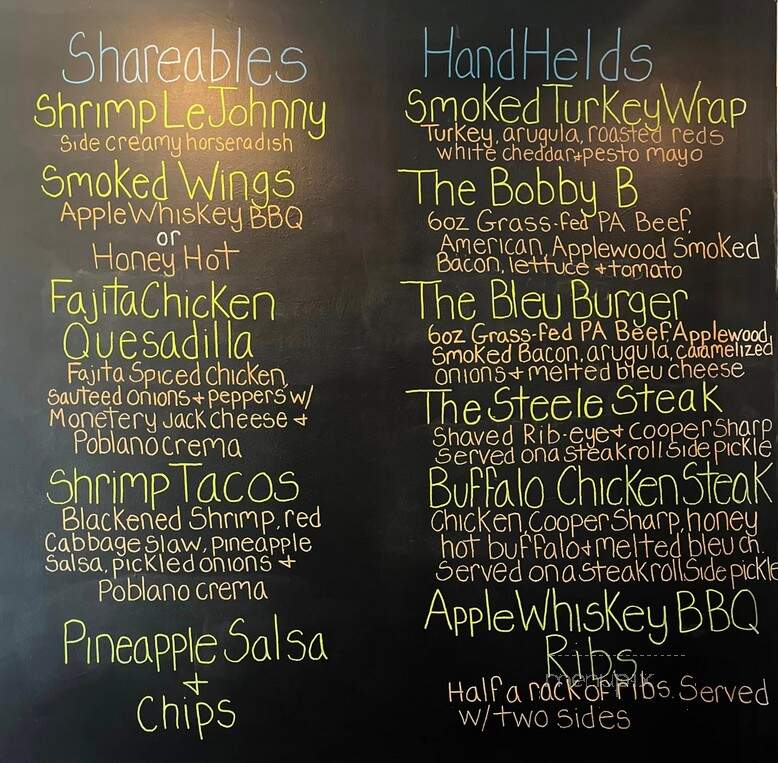 Shareables
Shrimp Le Johnny
Side creamy horseradish
Smoked Wings
Apple Whiskey BBQ
or
Honey Hot
Fajita Chicken
Quesadilla
Fajita Spiced Chicken,
Sauteed onions + peppers w/
Monetery Jack cheese +
Poblano crema
Shrimp Tacos
Blackened Shrimp, red
Cabbage slaw, pineapple
Salsa, pickled onions +
Poblano crema
Pineapple Salsa
+
Chips
HandHelds
Smoked Turkey Wrap
Turkey, arugula, roasted reds
white cheddar + pesto mayo
The Bobby B
6oz Grass-fed PA Beef,
American, Applewood Smoked
Bacon, lettuce + tomato
The Bleu Burger
6oz Grass-fed PA Beef, Applewood
Smoked Bacon, arugula, caramelized
onions + melted bleu cheese
The Steele Steak
Shaved Rib-eye + Cooper Sharp
Served on a steak roll Side pickle
Buffalo Chicken Steak
Chicken, Cooper Sharp, honey
hot buffalo + melted bleu ch.
Served on a steak roll Side pickle
Apple Whiskey BBQ
Ribs
Half a rack of ribs. Served
w/ two sides